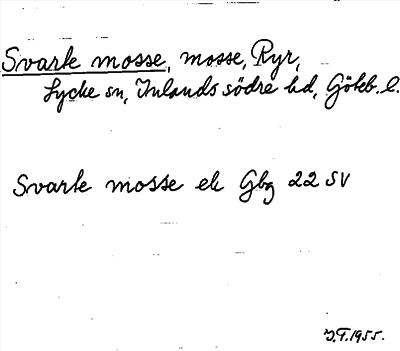 Svarte mosse, mosse, Ryr,
Lycke sn, Inlands södre hd, Göteb. l.
Svarte mosse ek Gbg 22 SV
J.F. 1955.